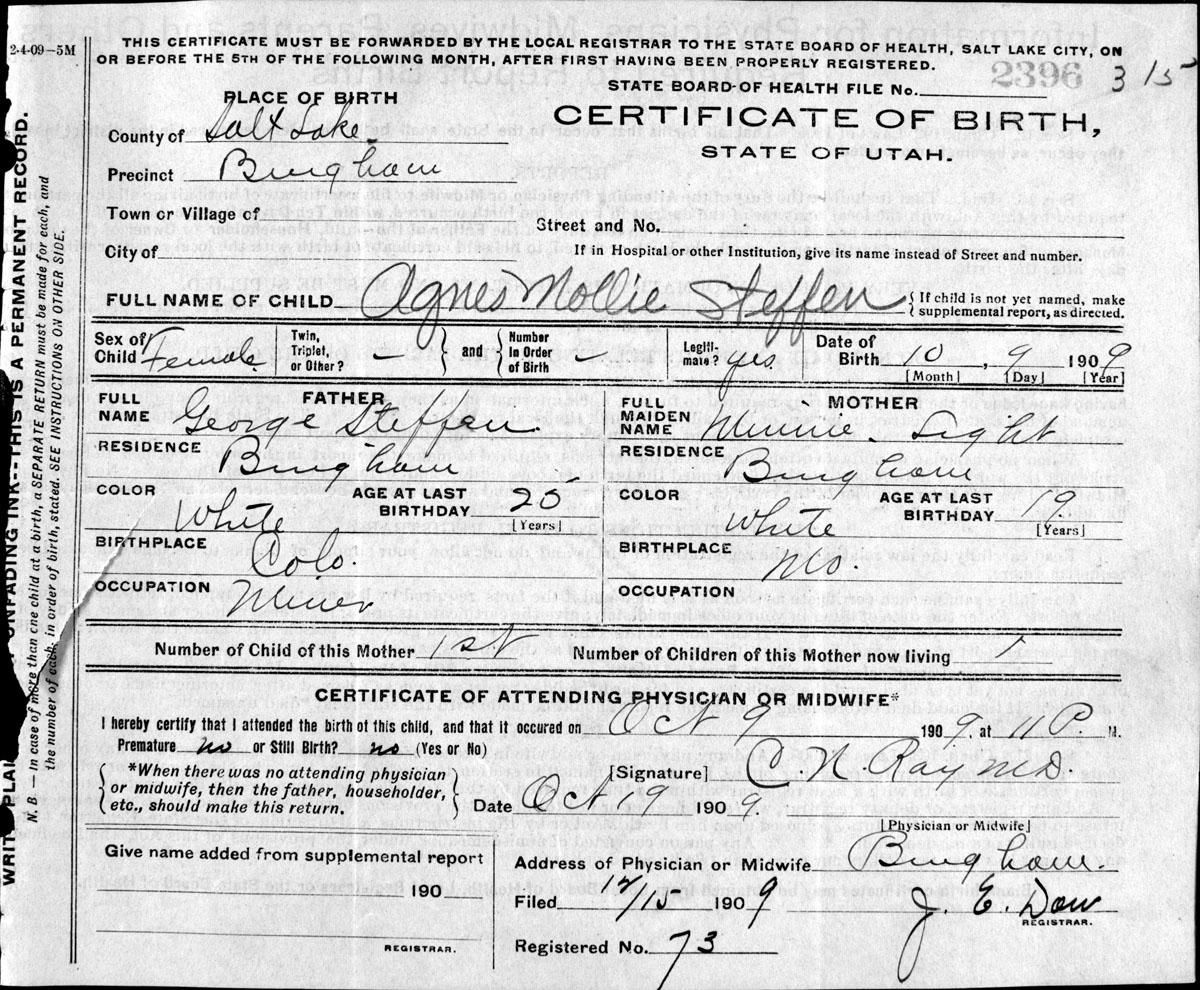 2-4-09—5M
THIS CERTIFICATE MUST BE FORWARDED BY THE LOCAL REGISTRAR TO THE STATE BOARD OF HEALTH, SALT LAKE CITY, ON
OR BEFORE THE 5TH OF THE FOLLOWING MONTH, AFTER FIRST HAVING BEEN PROPERLY REGISTERED.
2396 3 15
STATE BOARD OF HEALTH FILE No.
PLACE OF BIRTH
CERTIFICATE OF BIRTH,
STATE OF UTAH.
County of Salt Lake
Precinct Bingham
Town or Village of
Street and No.
City of
If in Hospital or other Institution, give its name instead of Street and number.
FULL NAME OF CHILD Agnes Mollie Steffen {If child is not yet named, make supplemental report, as directed.
Sex of Child Female Twin, Triplet, or Other? - } and { Number in Order of Birth - Legiti- mate? yes. Date of Birth 10, 9 1909
[Month] [Day] [Year]
FATHER
FULL NAME George Steffen.
RESIDENCE Bingham
COLOR White AGE AT LAST BIRTHDAY 25
[Years]
BIRTHPLACE Colo.
OCCUPATION Miner
MOTHER
FULL MAIDEN NAME Minnie Light
RESIDENCE Bingham
COLOR White AGE AT LAST BIRTHDAY 19.
[Years]
BIRTHPLACE Mo.
OCCUPATION
Number of Child of this Mother 1st Number of Children of this Mother now living 1
CERTIFICATE OF ATTENDING PHYSICIAN OR MIDWIFE*
I hereby certify that I attended the birth of this child, and that it occured on Oct 9 1909. at 11 P. M.
Premature no or Still Birth? no (Yes or No)
{*When there was no attending physician
or midwife, then the father, householder,
etc., should make this return.}
[Signature] C. N. Ray M.D.
Date Oct 9 1909.
[Physician or Midwife]
Give name added from supplemental report
190
REGISTRAR.
Address of Physician or Midwife Bingham.
Filed 12/15 1909 J. E. Dow
REGISTRAR.
Registered No. 73
UNFADING INK--THIS IS A PERMANENT RECORD.
N. B.—In case of more than one child at a birth, a SEPARATE RETURN must be made for each, and
the number of each, in order of birth, stated. SEE INSTRUCTIONS ON OTHER SIDE.